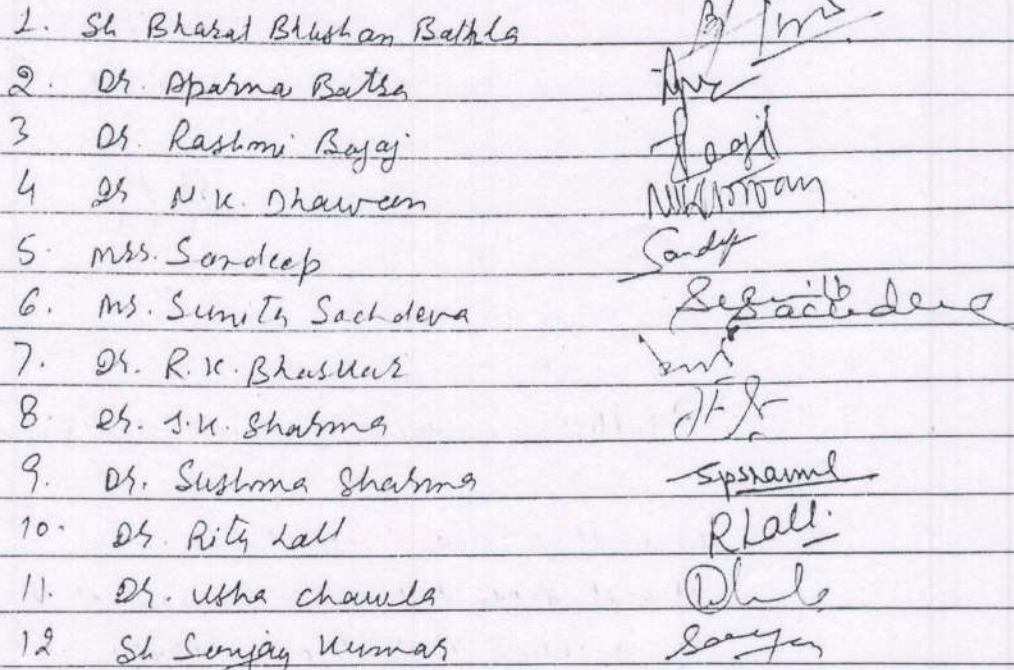 1. Sh Bharat Bhushan Bathla
2. Dr. Aparna Batra
3 Dr. Rashmi Bajaj
4 Dr N.K. Dhawan
5. Mrs. Sandeep Sandeep
6. Ms. Sunita Sachdeva Sunita Sachdeva
7. Dr. R.K. Bhaskar
8 Dr. J.K. Sharma
9. Dr. Sushma Sharma
10. Dr. Rita Lall RLall.
11. Dr. Usha Chawla
12 Sh Sanjay Kumar